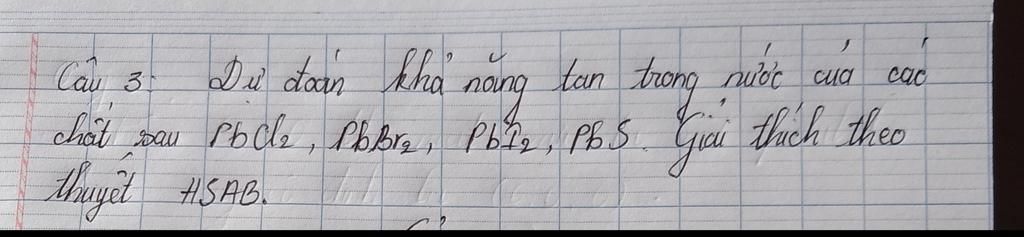 Câu 3: Dự đoán khả năng tan trong nước của các
chất sau PbCl2, PbBr2, PbI2, PbS. Giải thích theo
thuyết HSAB.